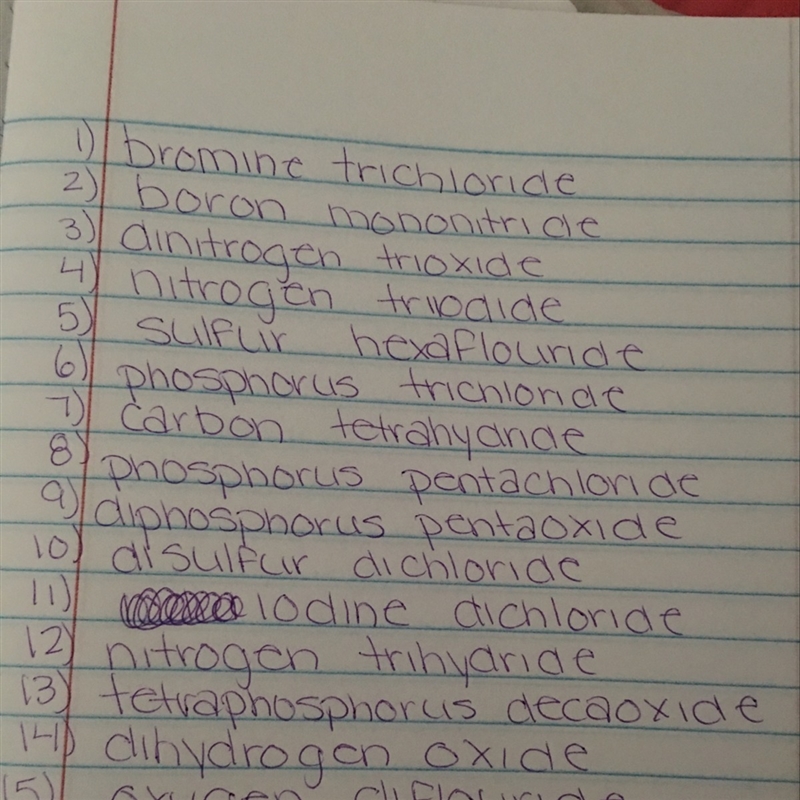 1) bromine trichloride
2) boron mononitride
3) dinitrogen trioxide
4) nitrogen triiodide
5) sulfur hexaflouride
6) phosphorus trichloride
7) carbon tetrahydride
8) phosphorus pentachloride
9) diphosphorus pentaoxide
10) disulfur dichloride
11) iodine dichloride
12) nitrogen trihydride
13) tetraphosphorus decaoxide
14) dihydrogen oxide
15) oxygen diflouride